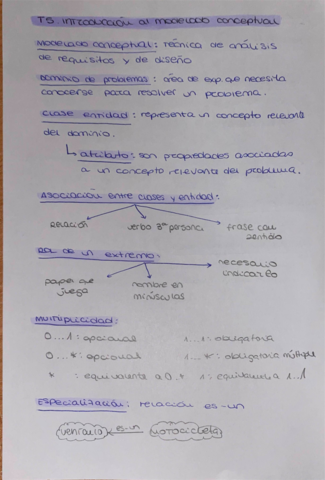 T5. INTRODUCCIÓN al modelado conceptual
MODELADO CONCEPTUAL: técnica de análisis
de requisitos y de diseño
DOMINIO DE PROBLEMAS: área de exp. que necesita
conocerse para resolver un problema.
CLASE ENTIDAD: representa un concepto relevante
del dominio.
atributo: son propiedades asociadas
a un concepto relevante del problema.
ASOCIACIÓN entre clases y entidad:
RELACIÓN verbo 3ª persona frase con
sentido
ROL DE UN EXTREMO:
necesario
indicarlo
papel que nombre en
juega minúsculas
MULTIPLICIDAD:
0...1: opcional 1...1: obligatoria
0...*: opcional 1...*: obligatorio múltiple
* : equivalente a 0..* 1: equivalencia 1..1
ESPECIALIZACIÓN: relación es-un
vehículo es-un motocicleta